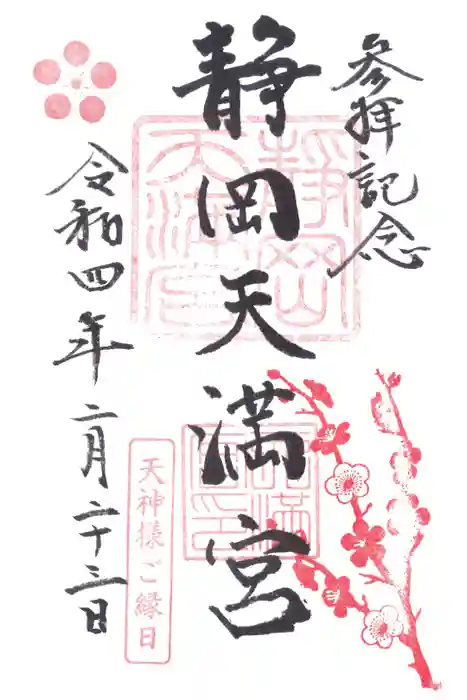 参拝記念
静岡天満宮
天神様ご縁日
令和四年二月二十三日